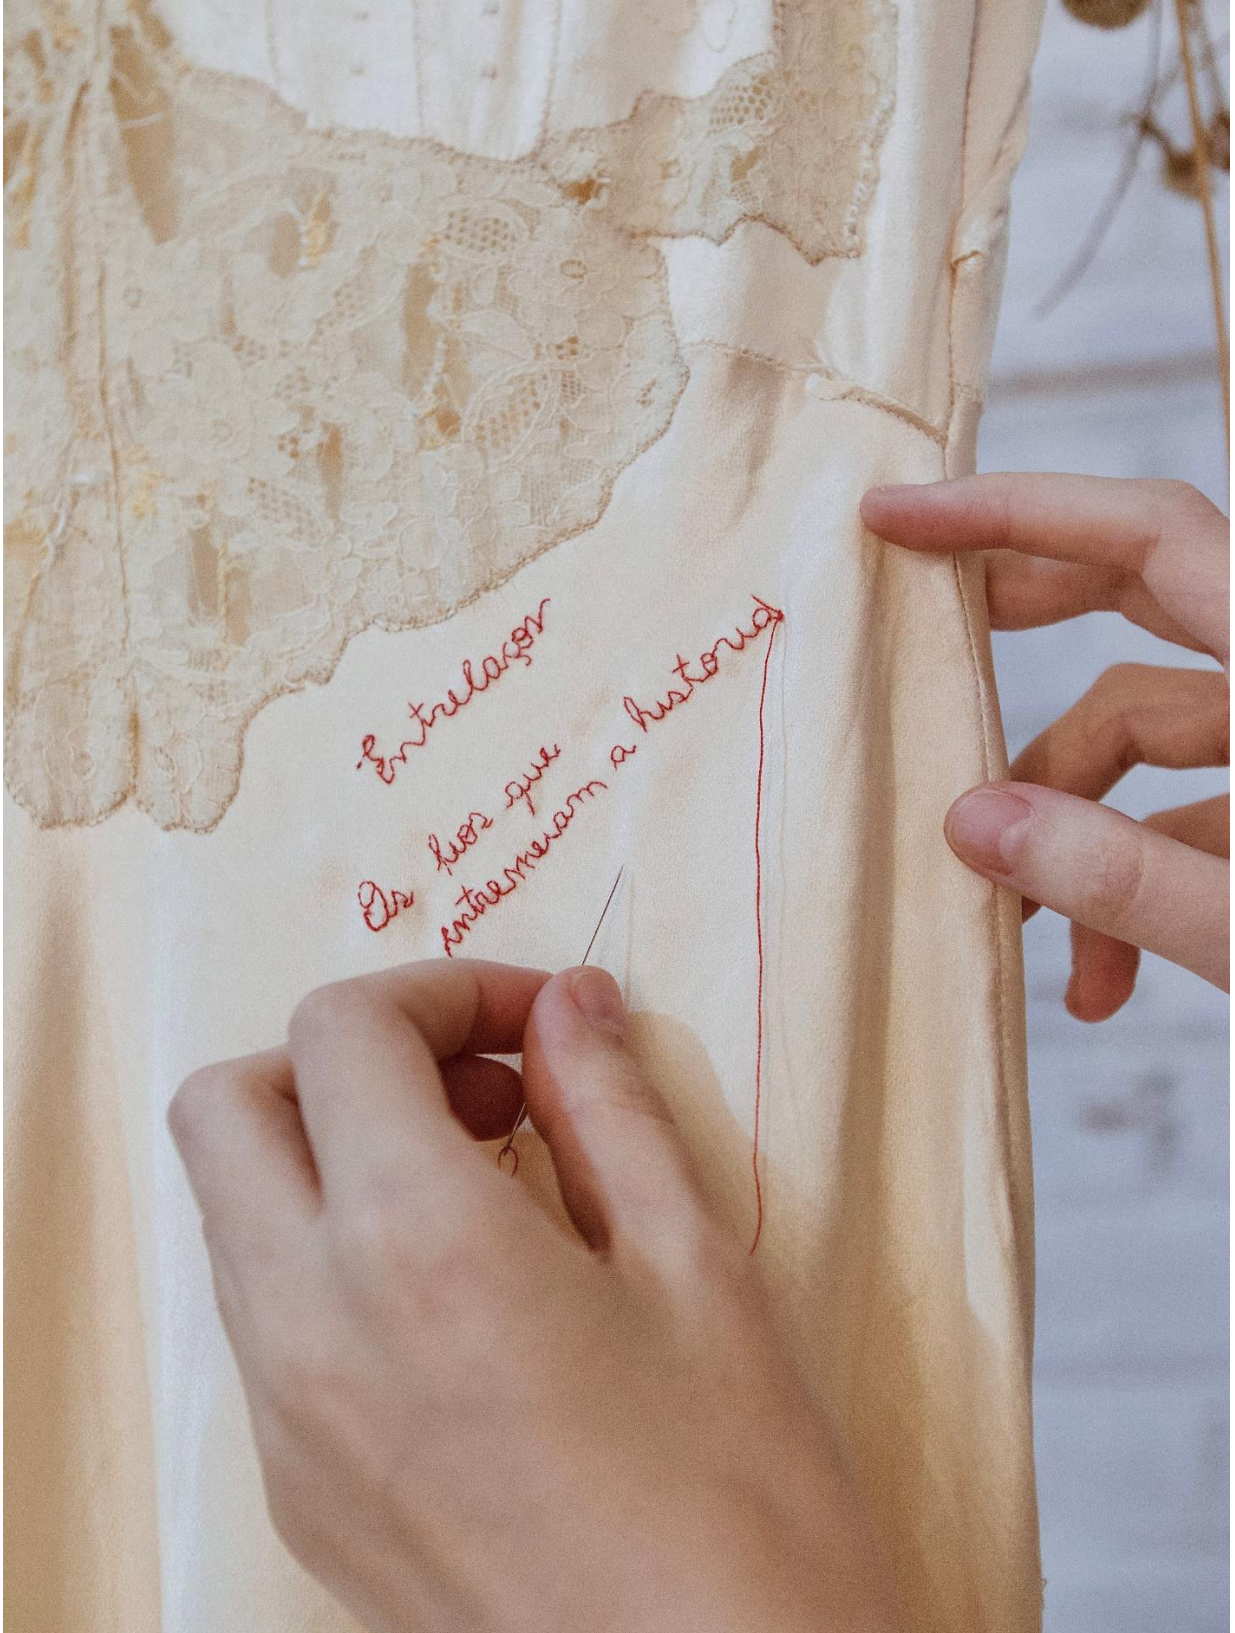 Entrelaços
Os fios que
entremeiam a historia